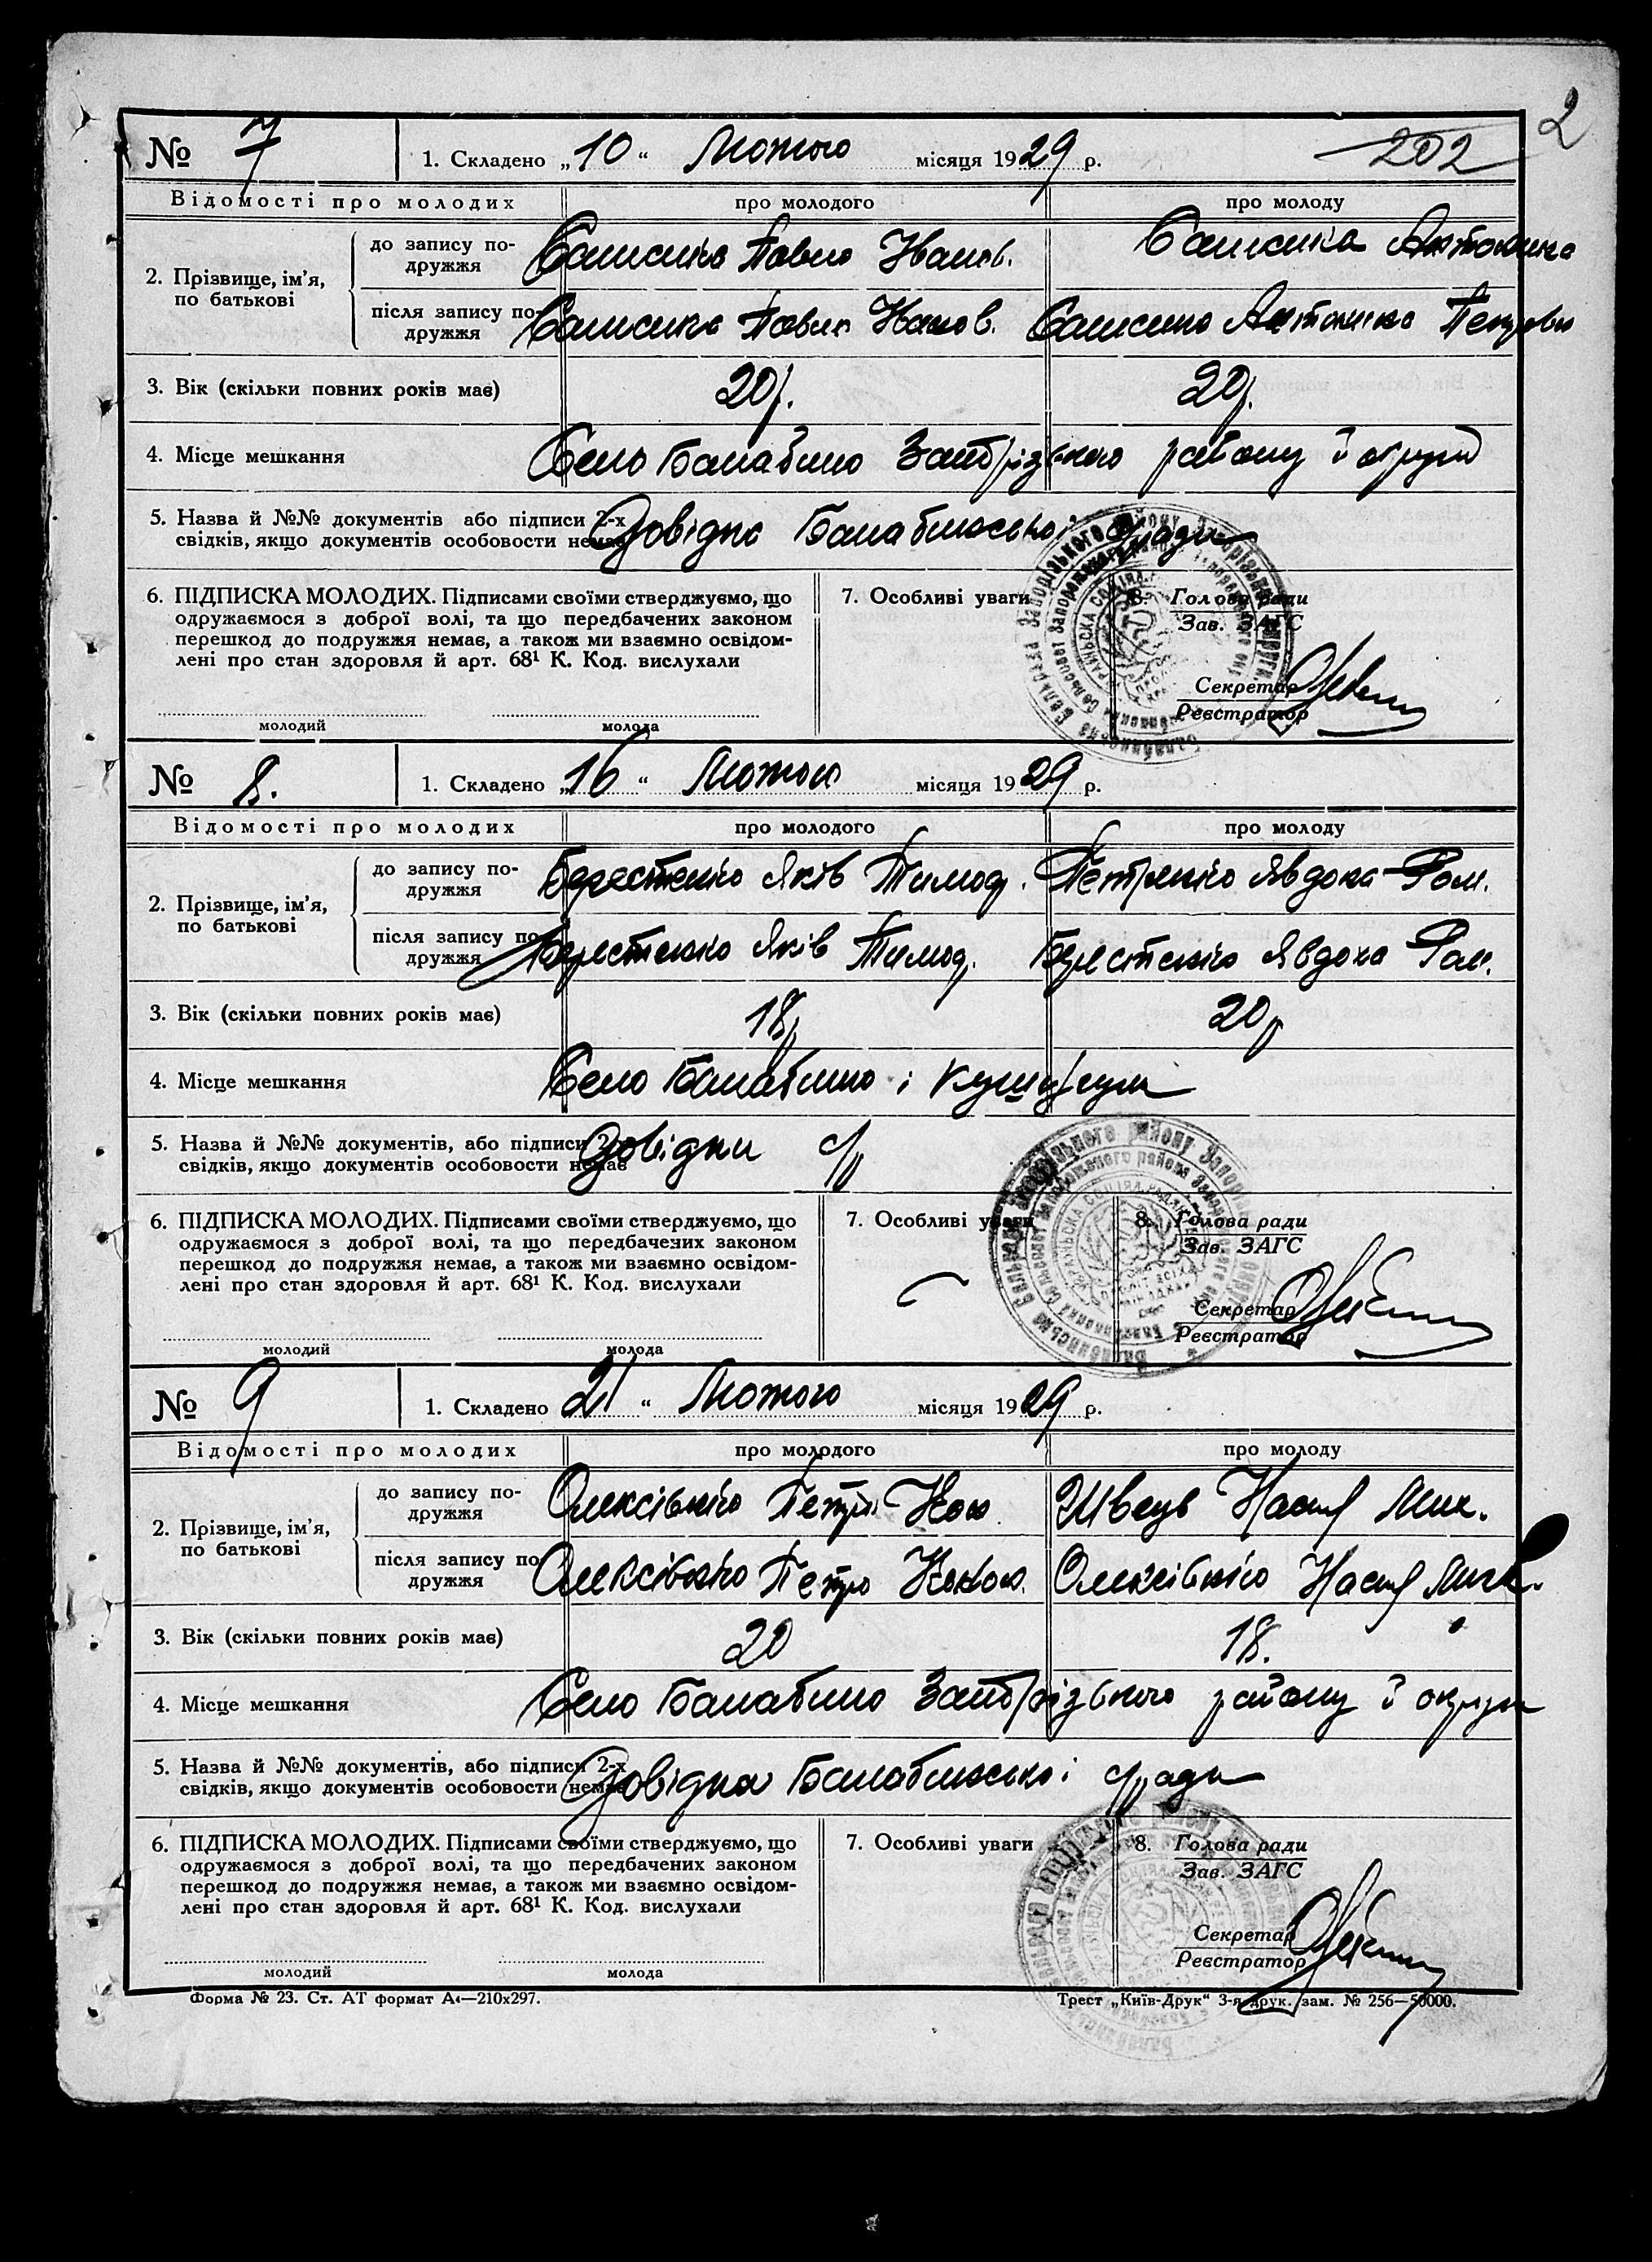 2
202
№ 7 1. Складено „10“ Лютого місяця 1929 р.
Відомості про молодих про молодого про молоду
2. Прізвище, ім’я, по батькові
до запису по-
дружжя
Павло Іванов. Антоніна
після запису по-
дружжя
Павло Іванов. Антоніна Петровн
3. Вік (скільки повних років має) 20 р. 20 р.
4. Місце мешкання Село Балабино Запорізького району й округи
5. Назва й №№ документів або підписи 2-х
свідків, якщо документів особовости немає
Довідка Балабинської с/ради
6. ПІДПИСКА МОЛОДИХ. Підписами своїми стверджуємо, що
одружаємося з доброї волі, та що передбачених законом
перешкод до подружжя немає, а також ми взаємно освідом-
лені про стан здоровля й арт. 68¹ К. Код. вислухали
молодий молода
7. Особливі уваги
8. Голова ради
Зав. ЗАГС
Секретар
Реєстратор
№ 8. 1. Складено „16“ Лютого місяця 1929 р.
Відомості про молодих про молодого про молоду
2. Прізвище, ім’я,
по батькові
до запису по-
дружжя
Берестенко Яків Тимоф. Петренко Явдоха Ром.
після запису по-
дружжя
Берестенко Яків Тимоф. Берестенко Явдоха Ром.
3. Вік (скільки повних років має) 18 р 20 р
4. Місце мешкання Село Балабино і Кушугум
5. Назва й №№ документів, або підписи 2-х
свідків, якщо документів особовости немає
Довідки с/р
6. ПІДПИСКА МОЛОДИХ. Підписами своїми стверджуємо, що
одружаємося з доброї волі, та що передбачених законом
перешкод до подружжя немає, а також ми взаємно освідом-
лені про стан здоровля й арт. 68¹ К. Код. вислухали
молодий молода
7. Особливі уваги
8. Голова ради
Зав. ЗАГС
Секретар
Реєстратор
№ 9 1. Складено 21 “ Лютого місяця 1929 р.
Відомості про молодих про молодого про молоду
2. Прізвище, ім’я,
по батькові
до запису по-
дружжя
Олексієнко Петро Кон. Швець Настя Мик.
після запису по-
дружжя
Олексієнко Петро Конон. Олексієнко Настя Мик.
3. Вік (скільки повних років має) 20 18.
4. Місце мешкання Село Балабино Запорізького району й округи
5. Назва й №№ документів, або підписи 2-х
свідків, якщо документів особовости немає
Довідка Балабинської с/ради
6. ПІДПИСКА МОЛОДИХ. Підписами своїми стверджуємо, що
одружаємося з доброї волі, та що передбачених законом
перешкод до подружжя немає, а також ми взаємно освідом-
лені про стан здоровля й арт. 68¹ К. Код. вислухали
молодий молода
7. Особливі уваги
8. Голова ради
Зав. ЗАГС
Секретар
Реєстратор
Форма № 23. Ст. АТ формат А4—210х297. Трест „Київ-Друк“ 3-я друк. зам. № 256—50000.